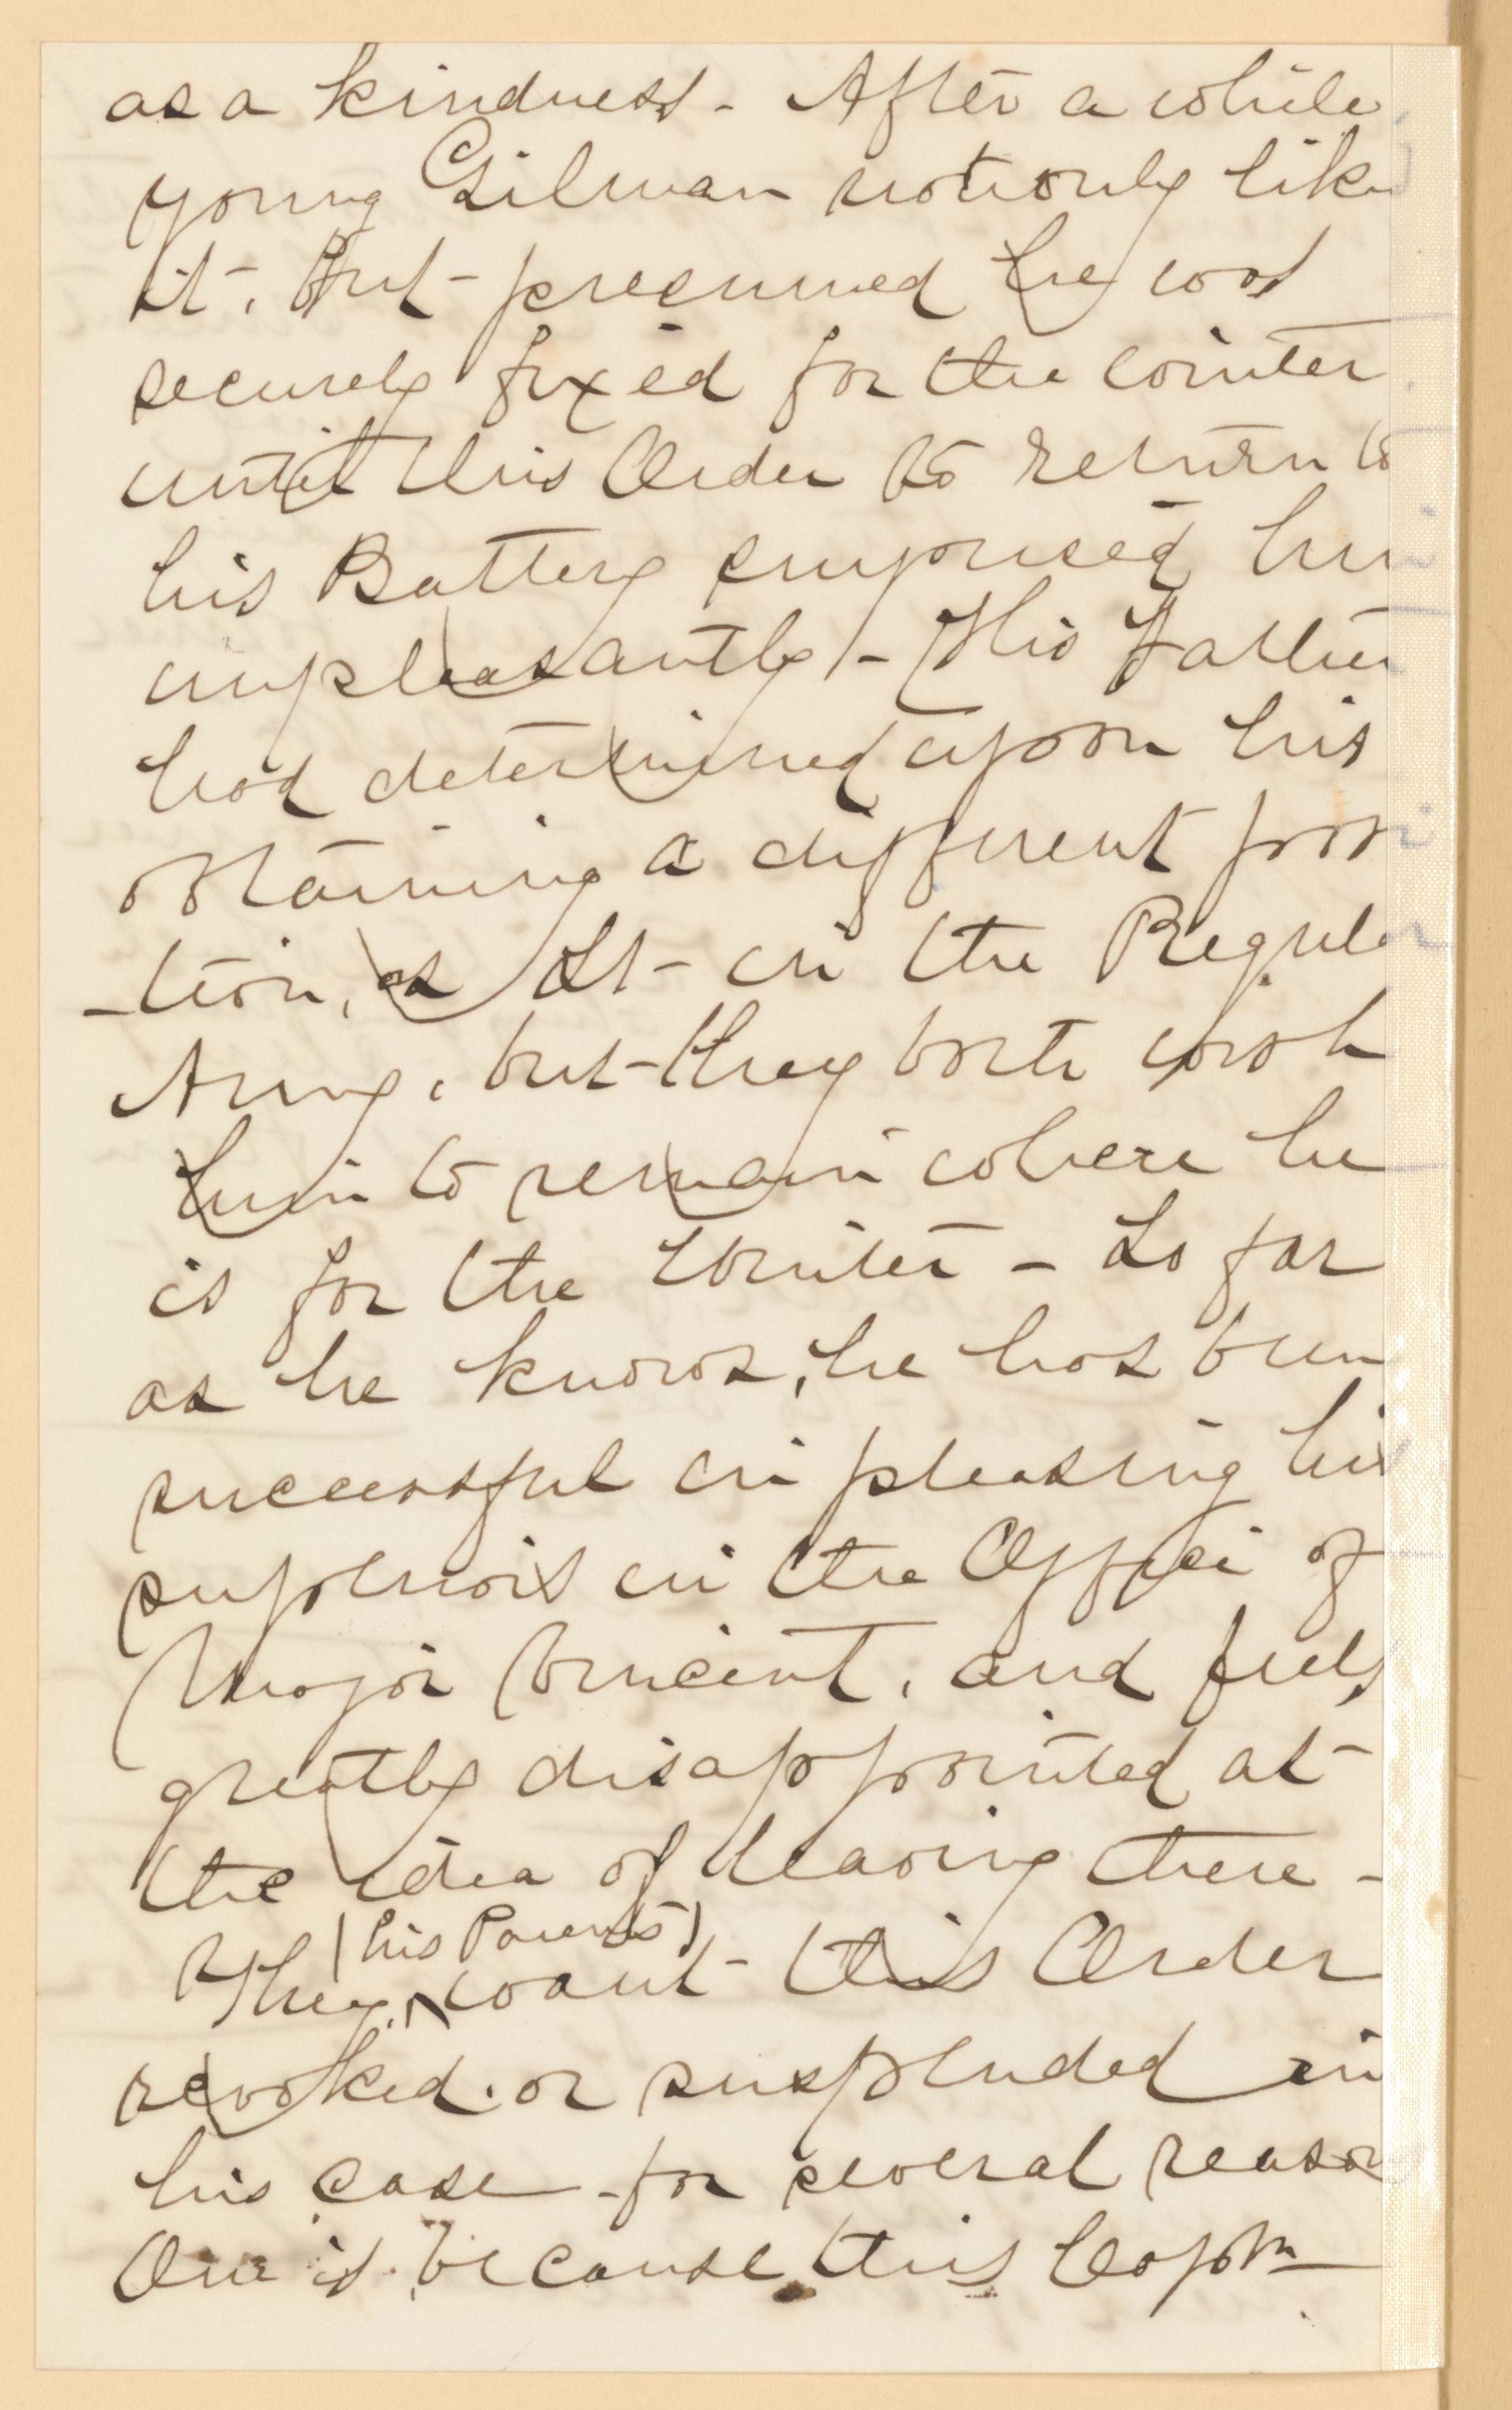 as a kindness - After a while,
young Gilman not only like
it, But presumed he was
securely fixed for the winter
until this Order to return to
his Battery surprised him
unpleasantly - His Father
had determined upon his
obtaining a different posi
-tion, as Lt - in the Regular
Army, but they both wish
him to remain where he
is for the Winter - So far
as he knows, he has been
successful in pleasing his
superiors in the Office of
Major Vincent, and feels
greatly disappointed at
the idea of leaving there -
They, (his Parents) want this Order
revoked or suspended in
his case - for several reason
One is because this Captn